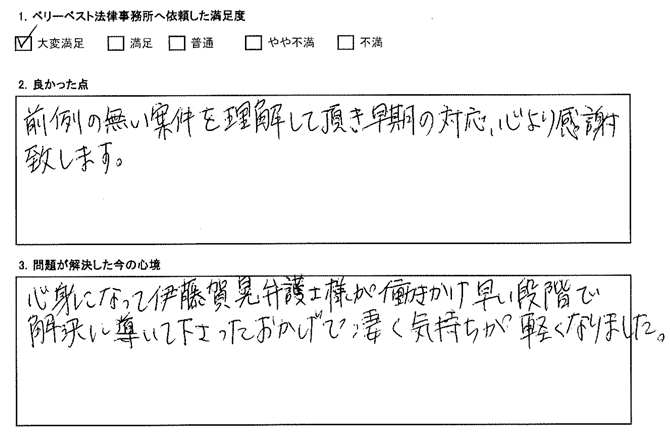 1. ベリーベスト法律事務所へ依頼した満足度
大変満足 満足 普通 やや不満 不満
2. 良かった点
前例の無い案件を理解して頂き早期の対応、心より感謝
致します。
3. 問題が解決した今の心境
心身になって伊藤賀晃弁護士様が働きかけ早い段階で
解決に導いて下さったおかげで凄く気持ちが軽くなりました。